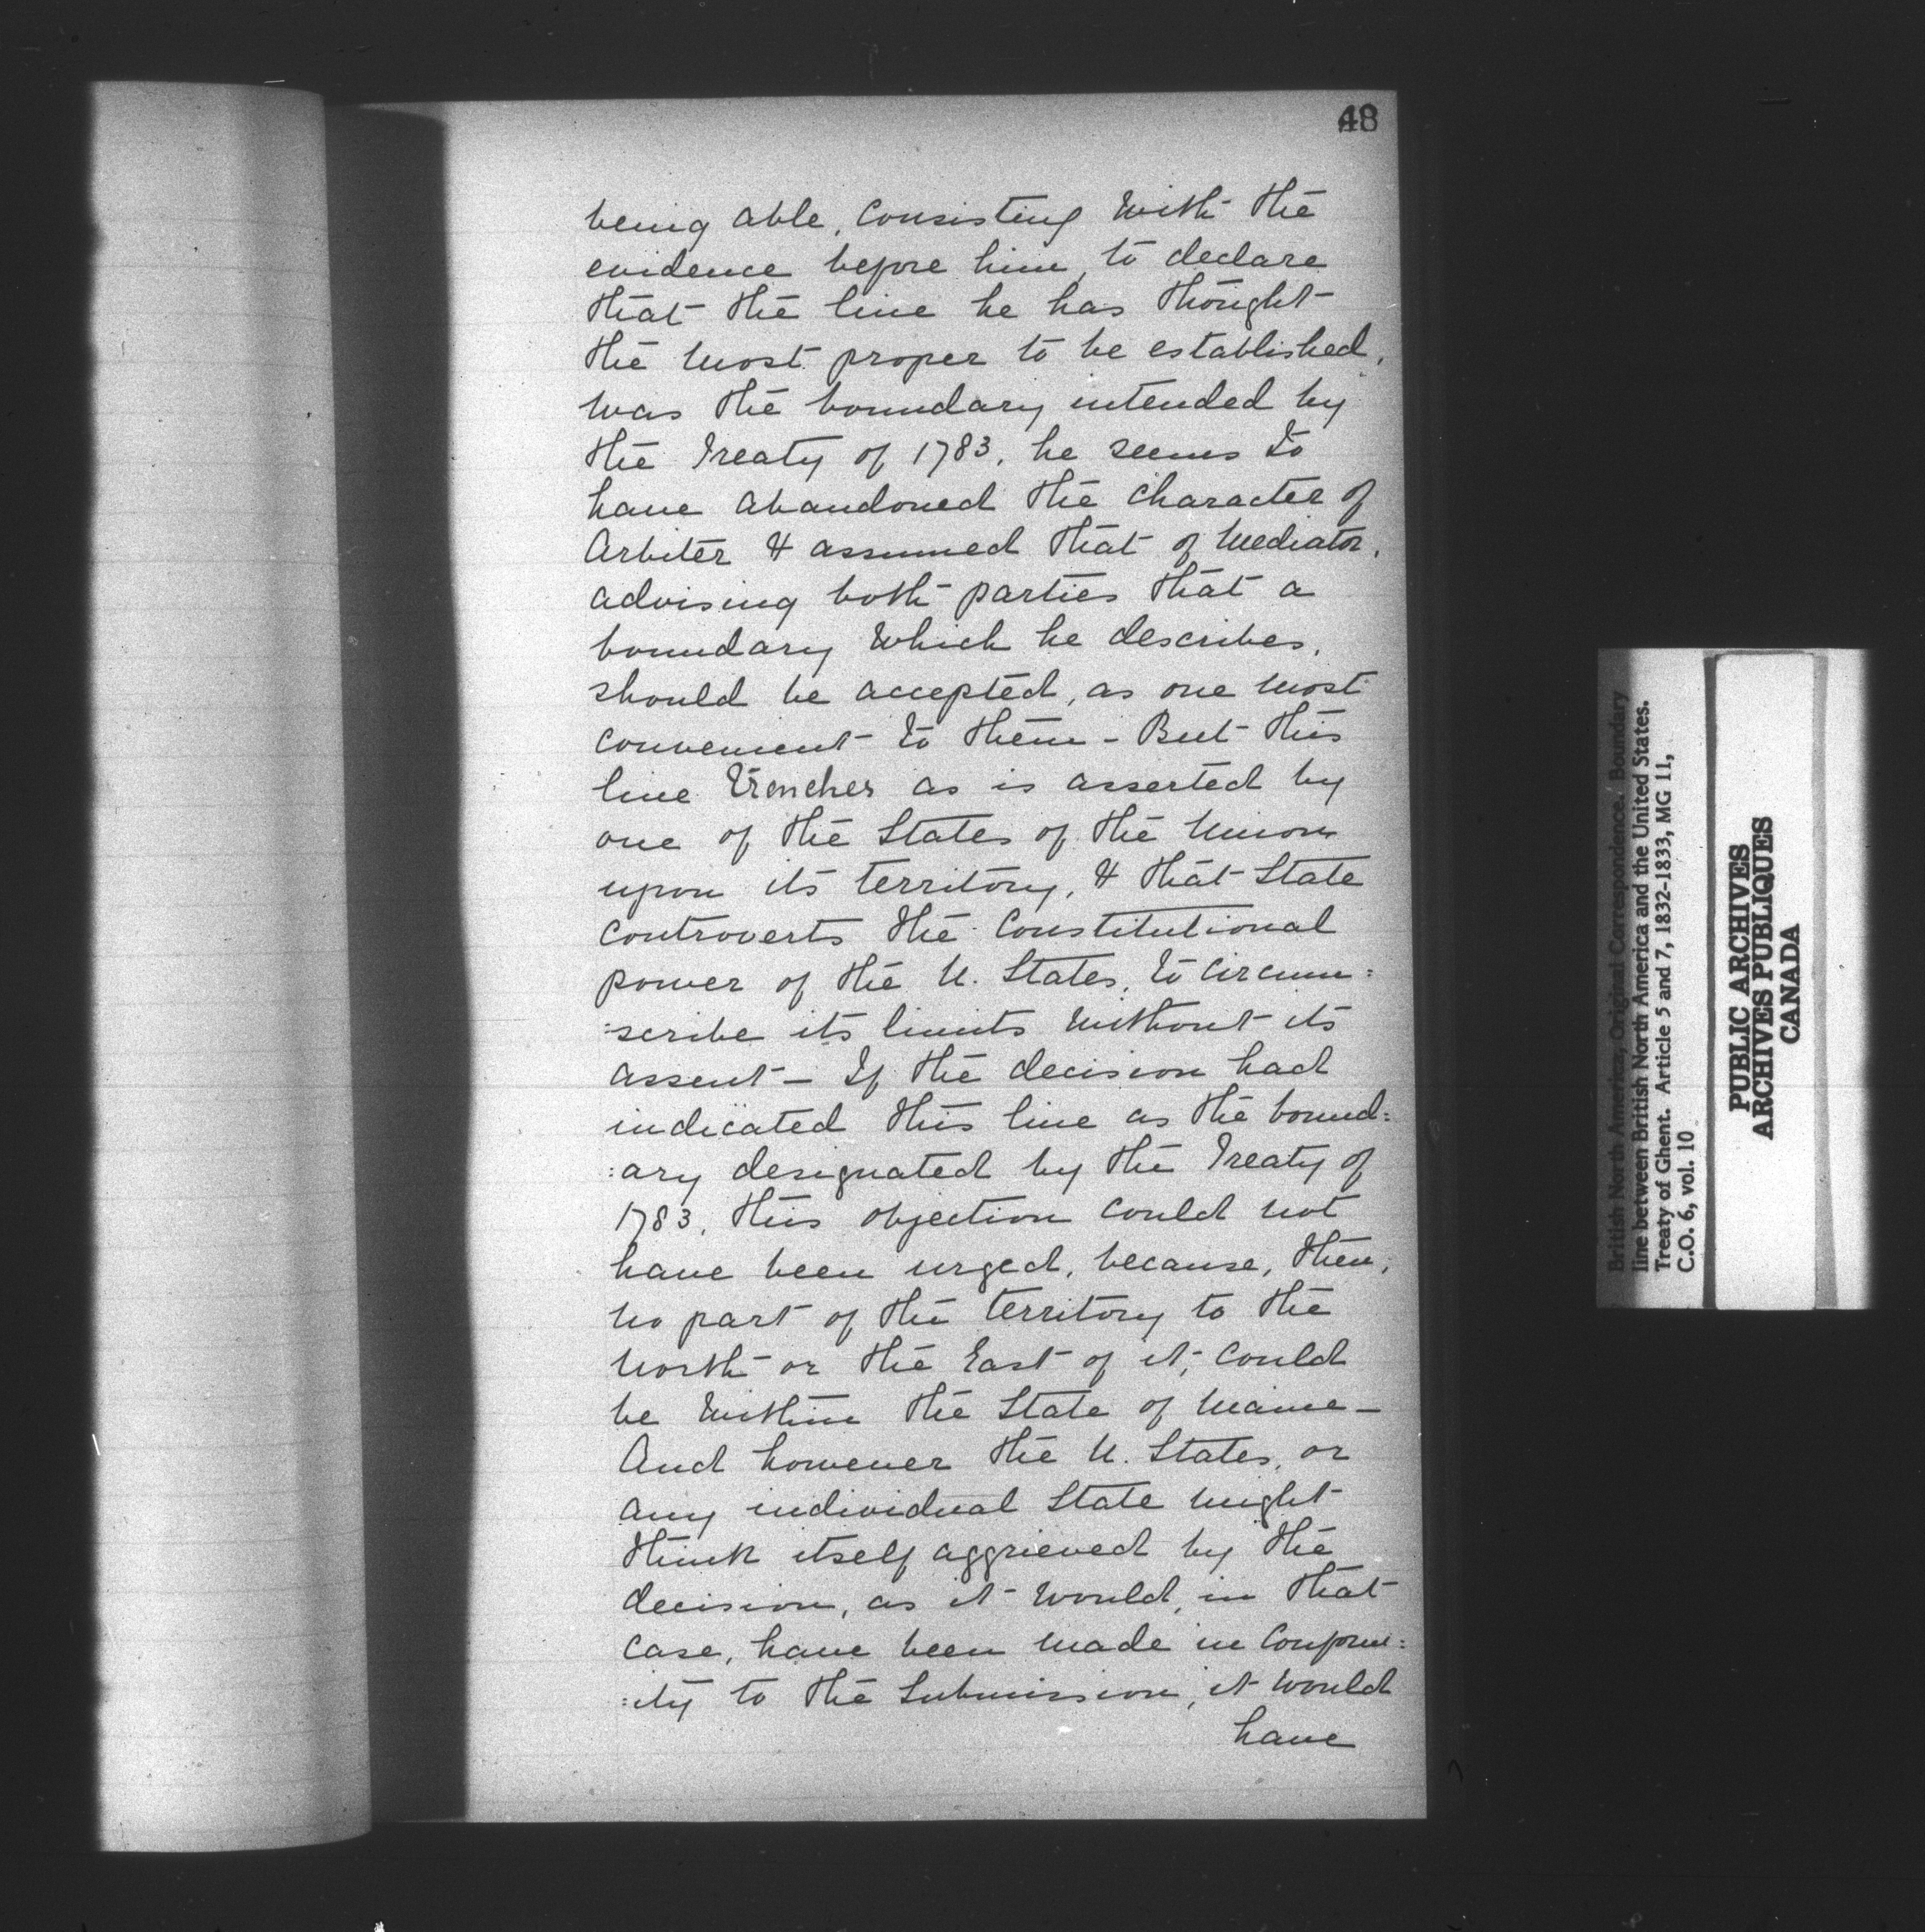 48
being able, consisting with the
evidence before him, to declare
that the line he has thought
the most proper to be established,
was the boundary intended by
the Treaty of 1783, he seems to
have abandoned the character of
Arbiter & assumed that of Mediator,
advising both parties that a
boundary which he describes,
should be accepted, as one most
convenient to them - But this
line trenches as is asserted by
one of the States of the Union
upon its territory, & that State
controverts the Constitutional
power of the U. States, to circum:
:scribe its limits without its
assent - If the decision had
indicated this line as the bound:
:ary designated by the Treaty of
1783, this objection could not
have been urged, because, then,
no part of the territory to the
north or the East of it, could
be within the State of Maine -
And however the U. States, or
any individual State might
think itself aggrieved by the
decision, as it would, in that
case, have been made in conform:
:ity to the Submission, it would
have
British North America, Original Correspondence. Boundary
line between British North America and the United States.
Treaty of Ghent. Article 5 and 7, 1832-1833, MG 11,
C.O. 6, vol. 10
PUBLIC ARCHIVES
ARCHIVES PUBLIQUES
CANADA